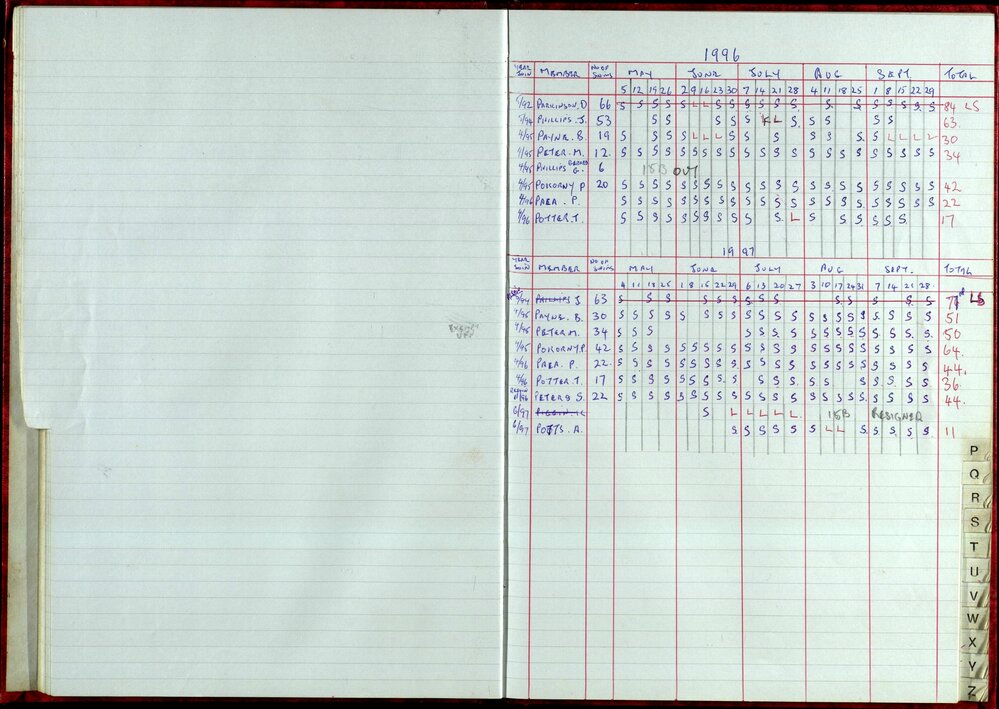 1996
YEAR JOIN MEMBER NO OF SWIMS MAY JUNE JULY AUG SEPT. TOTAL
5 12 19 26 2 9 16 23 30 7 14 21 28 4 11 18 25 1 8 15 22 29
5/92 PARKINSON. D 66 S S S S S L L S S S S S S S S S S S S S 84 LS
5/94 PHILLIPS. J. 53 S S S S S S L S S S S S 63.
4/95 PAYNE. B. 19 S S S S L L L S S S S S S S L L L L 30
4/95 PETER. M. 12. S S S S S S S S S S S S S S S S S S S S S S 34
4/95 PHILLIPS G. 6 15B OUT
4/95 POKORNY P 20 S S S S S S S S S S S S S S S S S S S S S S 42
4/96 PARA. P. S S S S S S S S S S S S S S S S S S S S S S 22
4/96 POTTER. T. S S S S S S S S S S S L S S S S S S S 17
1997
YEAR JOIN MEMBER NO OF SWIMS MAY JUNE JULY AUG SEPT. TOTAL
4 11 18 25 1 8 15 22 29 6 13 20 27 3 10 17 24 31 7 14 21 28
5/94 PHILLIPS J 63 S S S S S S S S S S S S S S LS
4/95 PAYNE. B. 30 S S S S S S S S S S S S S S S S S S S S S 51
4/95 PETER M. 34 S S S S S S S S S S S S S S S S 50
4/95 POKORNY. P. 42 S S S S S S S S S S S S S S S S S S S S S S 64.
4/96 PARA. P. 22. S S S S S S S S S S S S S S S S S S S S S S 44.
4/96 POTTER. T. 17 S S S S S S S S S S S S S S S S S S S 36.
REJOIN 5/96 PETERS S. 22 S S S S S S S S S S S S S S S S S S S S S S 44.
6/97 S L L L L L 15B RESIGNED
6/97 POTTS. A. S S S S S S S L L S S S S S 11
P
Q
R
S
T
U
V
W
X
Y
Z